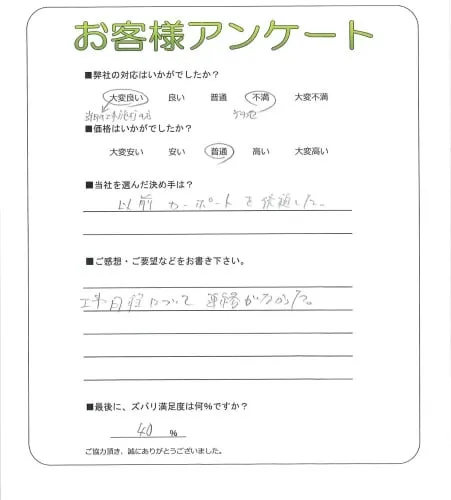 お客様アンケート
■弊社の対応はいかがでしたか?
大変良い 良い 普通 不満 大変不満
■価格はいかがでしたか?
大変安い 安い 普通 高い 大変高い
■当社を選んだ決め手は?
以前カーポートを依頼した。
■ご感想・ご要望などをお書き下さい。
工事日程について連絡がなかった。
■最後に、ズバリ満足度は何%ですか?
40 %
ご協力頂き、誠にありがとうございました。